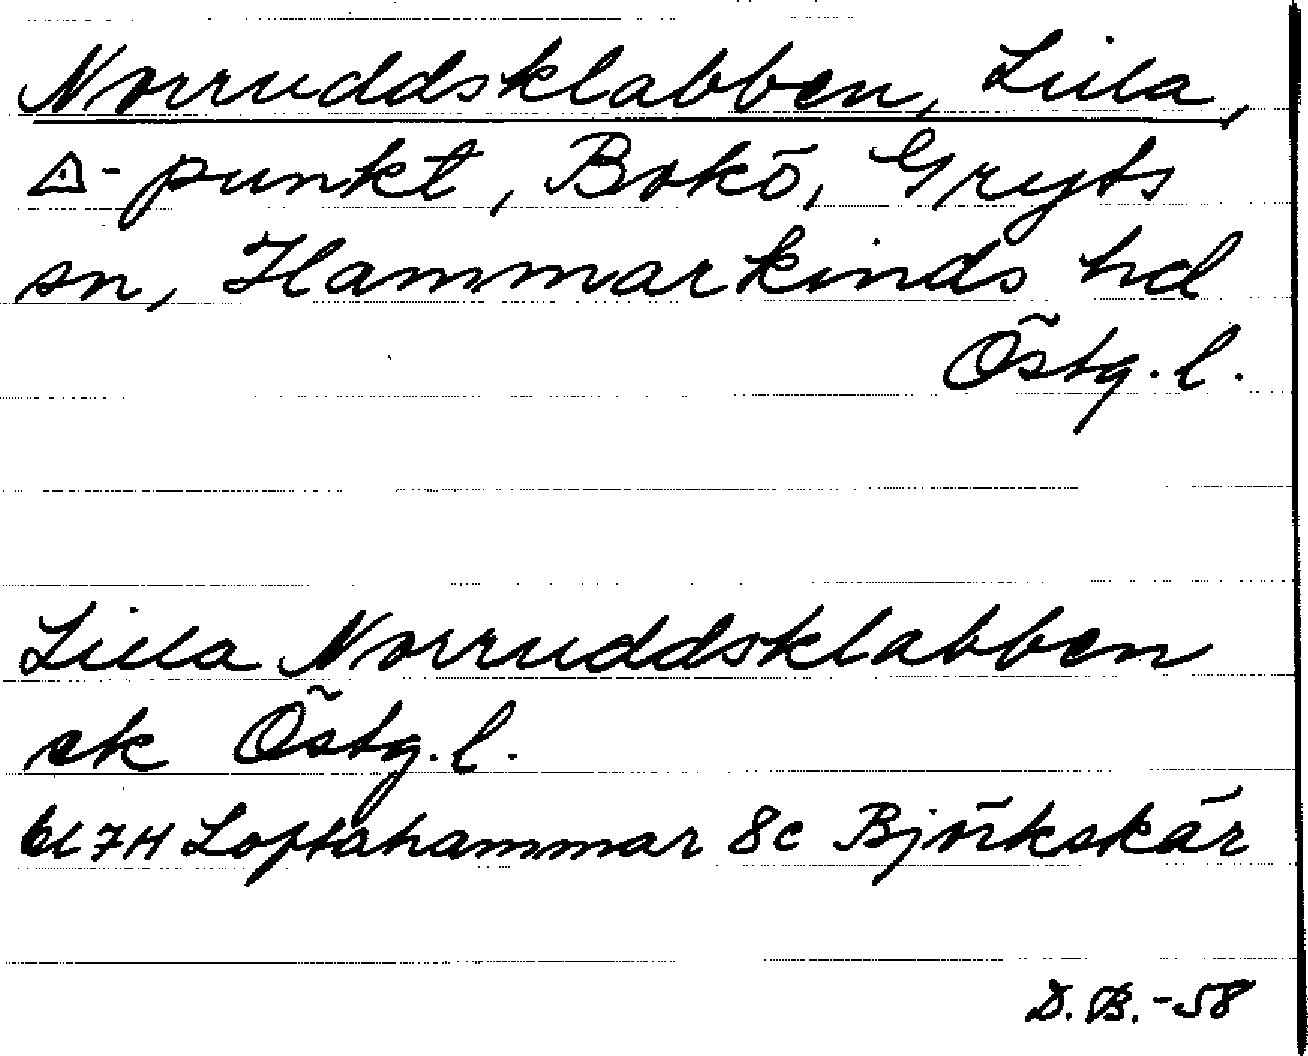 Norruddsklabben, Lilla,
△-punkt, Bokö, Gryts
sn, Hammarkinds hd
Östg. l.
Lilla Norruddsklabben
ek Östg. l.
bl 7H Loftahammar 8c Björkskär
D. B. -58